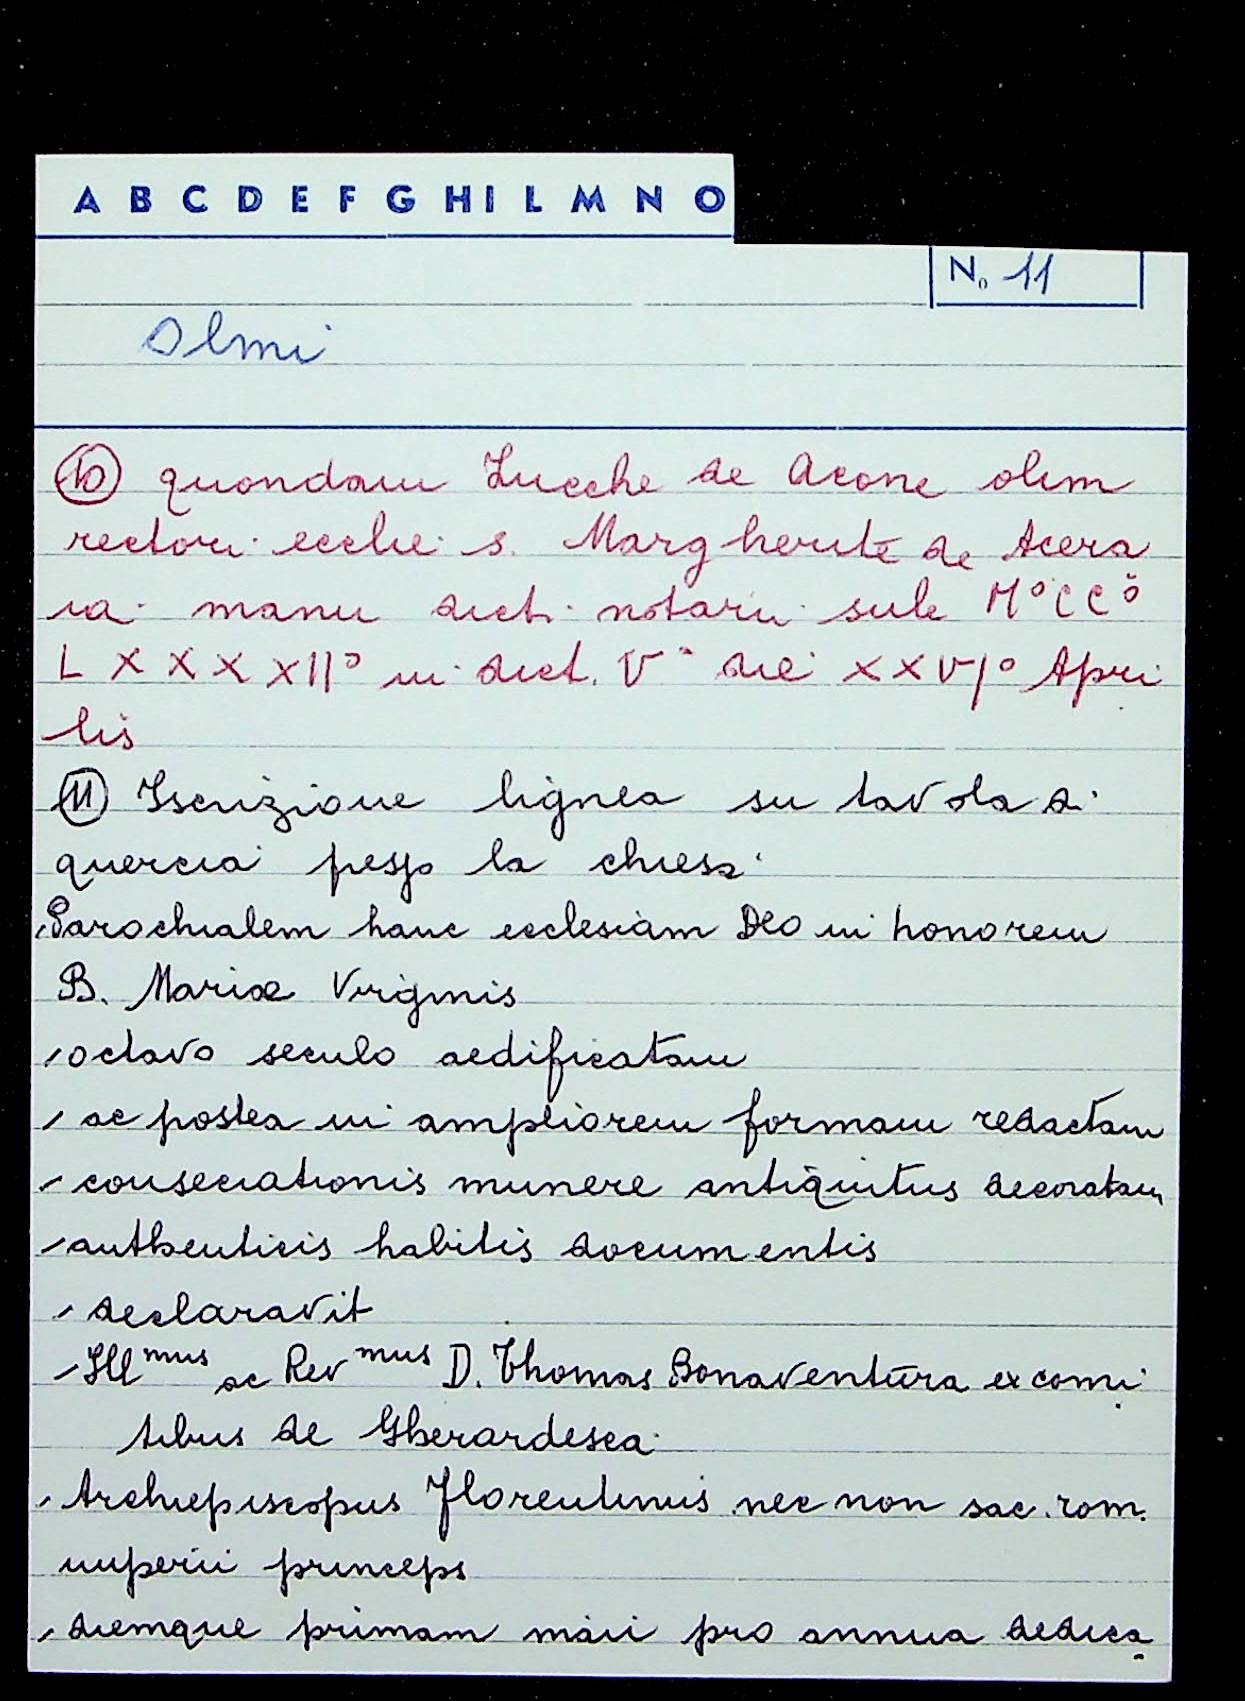 A B C D E F G H I L M N O
N. 11
Olmi
10 quondam Lucche de Acone olim
rectori ecclie s. Margherite de Acera
ia manu dict. notarii sub M°CC°
LXXXXII° in dict. V° die XXVI° Apri
lis
11 Iscrizione lignea su tavola di
quercia presso la chiesa
Parochialem hanc ecclesiam Deo in honorem
B. Mariae Virginis
octavo seculo aedificatam
ac postea in ampliorem formam redactam
consecrationis munere antiquitus decoratam
authenticis habitis documentis
declaravit
Illmus ac Revmus D. Thomas Bonaventura ex comi
tibus de Gherardesca
Archiepiscopus Florentinus nec non sac. rom.
imperii princeps
diemque primam maii pro annua dedica